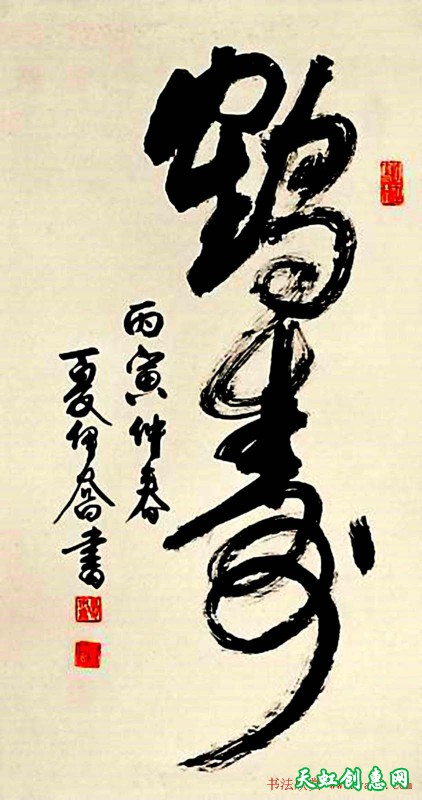 鹤寿
丙寅仲春
夏伊乔书
天虹创惠网